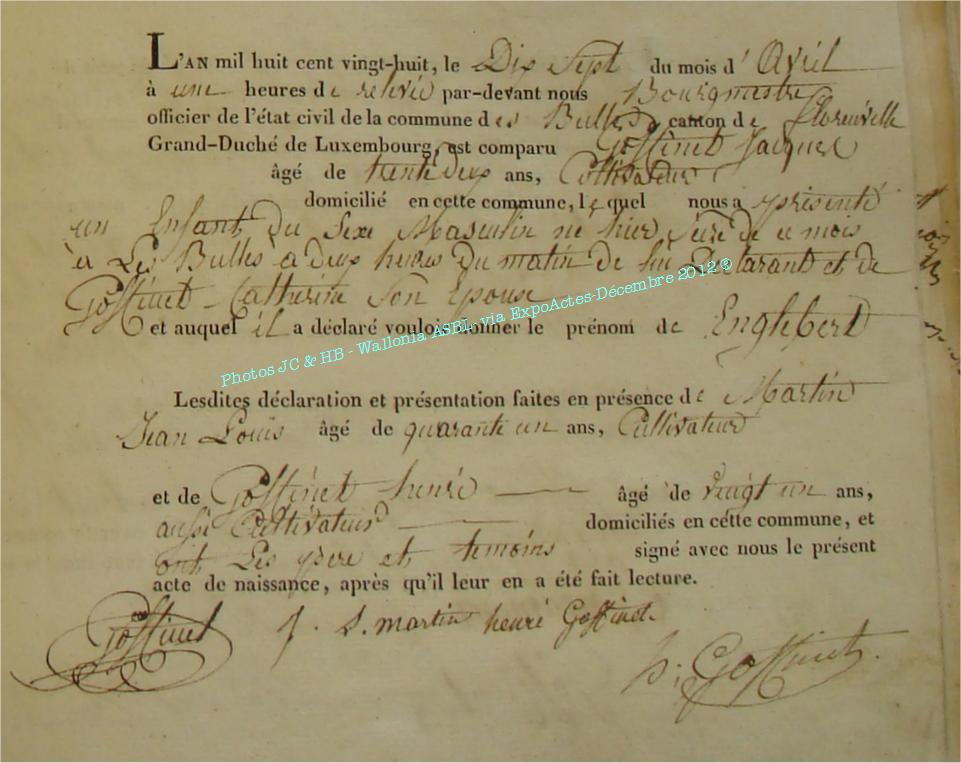 L'AN mil huit cent vingt-huit, le Dix Sept du mois d' Avril
à une heures de relevée par-devant nous Bourgmestre
officier de l'état civil de la commune des Bulles canton de florenville
Grand-Duché de Luxembourg, est comparu Goffinet Jacques
âgé de trente deux ans, Cultivateur
domicilié en cette commune, lequel nous a présenté
un Enfant du Sexe Masculin né hier Seize de ce mois
à Les Bulles à deux heures du matin de lui Déclarant et de
Goffinet Catherine Son Epouse
et auquel il a déclaré vouloir donner le prénom de Englebert
Photos JC & HB - Wallonia ASBL, via ExpoActes-Décembre 2012 ©
Lesdites déclaration et présentation faites en présence de Martin
Jean Louis âgé de quarante un ans, Cultivateur
et de Goffinet henri âgé de vingt un ans,
aussi Cultivateur domiciliés en cette commune, et
ont Les père et temoins signé avec nous le présent
acte de naissance, après qu'il leur en a été fait lecture.
Goffinet J. L. martin henri Goffinet
Goffinet